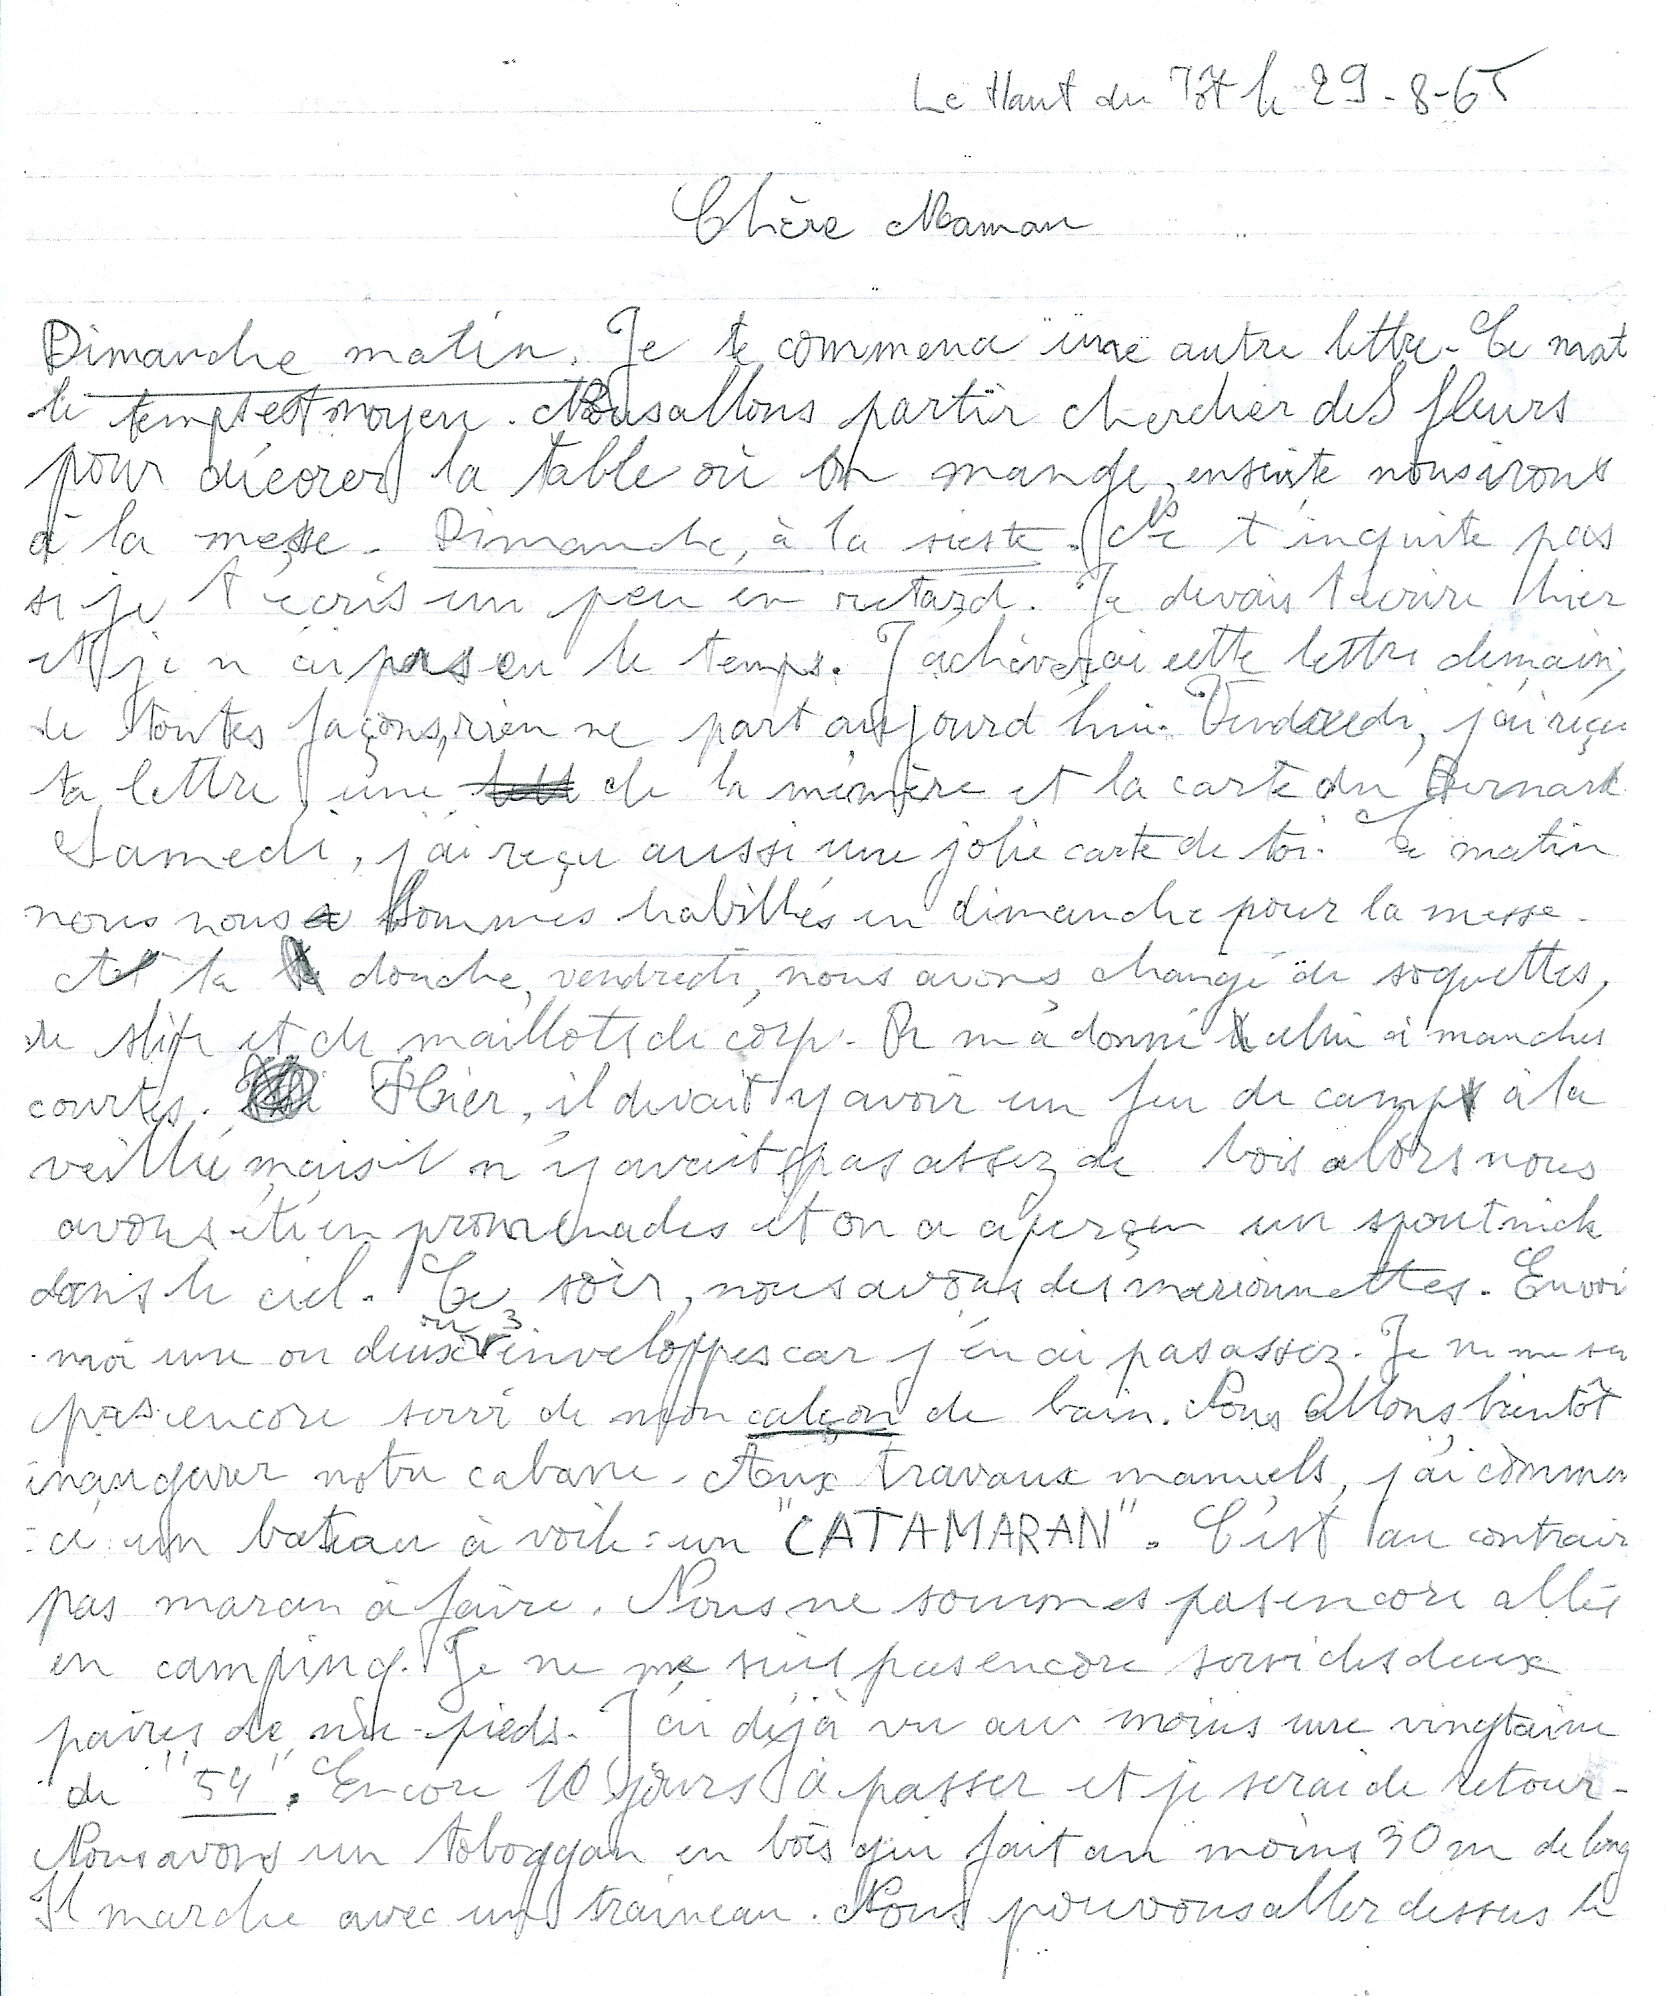 Le Haut du Tôt le 29-8-65
Chère Maman
Dimanche matin. Je te commence une autre lettre. Ce mat
le temps est moyen. Nous allons partir chercher des fleurs
pour décorer la table où on mange, ensuite nous irons
à la messe. Dimanche, à la sieste. Ne t'inquite pas
si je t'écris un peu en retard. Je devais t'écrire hier
et je n'ai pas eu le temps. J'achèverai cette lettre demain,
de toutes façons, rien ne part aujourd'hui. Vendredi, j'ai reçu
ta lettre, une de la mémère et la carte du Bernard.
Samedi, j'ai reçu aussi une jolie carte de toi. Ce matin
nous nous sommes habillés en dimanche pour la messe.
A la douche, vendredi, nous avons changé de soquettes,
de slip et de maillots de corp. On m'a donné celui à manches
courtes. Hier, il devait y avoir un feu de camp à la
veillé mais il n'y avait pas assez de bois alors nous
avons été en promenades et on a aperçu un spoutnick
dans le ciel. Ce soir, nous avons des marionnettes. Envoi
moi une ou deux ou 3 enveloppes car j'en ai pas assez. Je ne me su
pas encore servi de mon calçon de bain. Nous allons bientôt
inaugurer notre cabane. Aux travaux manuels, j'ai commen
-cé un bateau à voile : un "CATAMARAN". C'est au contrair
pas maran à faire. Nous ne sommes pas encore allés
en camping. Je ne me suis pas encore servi des deux
paires de nu-pieds. J'ai déjà vu au moins une vingtaine
de "54". Encore 10 jours à passer et je serai de retour.
Nous avons un toboggan en bois qui fait au moins 30 m de long
Il marche avec un traineau. Nous pouvons aller dessus le